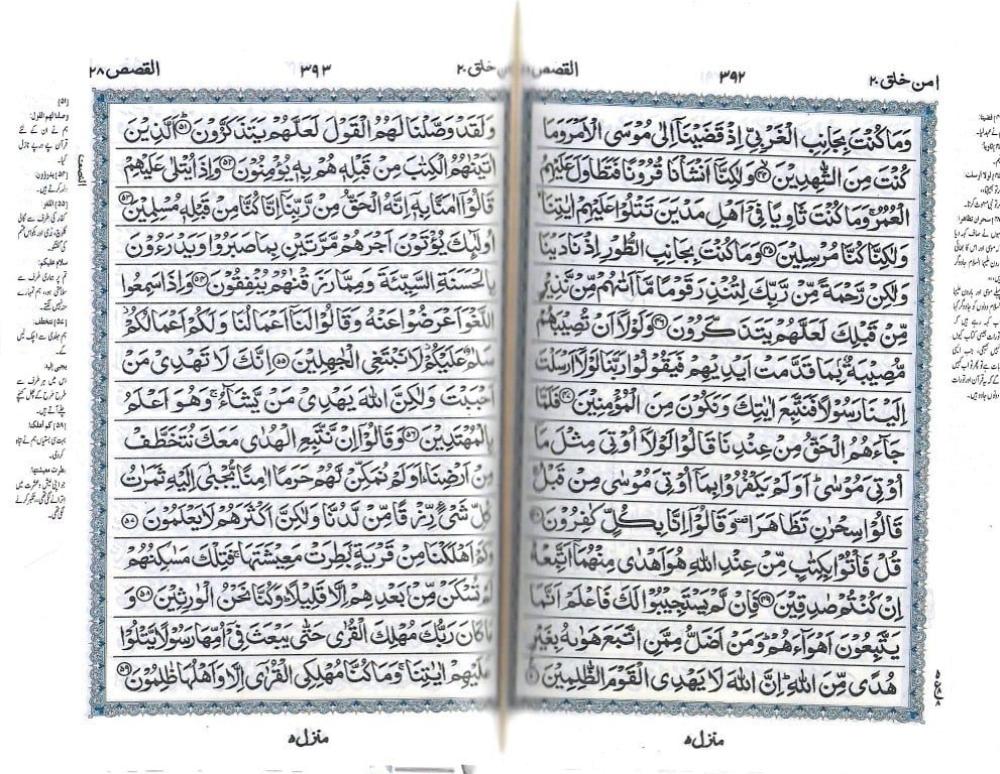 امن خلق ۲۰
۳۹۲
القصص
وَمَا كُنْتَ بِجَانِبِ الْغَرْبِيِّ اِذْ قَضَيْنَاۤ اِلٰى مُوْسَى الْاَمْرَ وَمَا
كُنْتَ مِنَ الشّٰهِدِيْنَ ﴿۴۴﴾ وَلٰكِنَّاۤ اَنْشَاْنَا قُرُوْنًا فَتَطَاوَلَ عَلَيْهِمُ
الْعُمُرُ ۚ وَمَا كُنْتَ ثَاوِيًا فِيْۤ اَهْلِ مَدْيَنَ تَتْلُوْا عَلَيْهِمْ اٰيٰتِنَا ۙ
وَلٰكِنَّا كُنَّا مُرْسِلِيْنَ ﴿۴۵﴾ وَمَا كُنْتَ بِجَانِبِ الطُّوْرِ اِذْ نَادَيْنَا
وَلٰكِنْ رَّحْمَةً مِّنْ رَّبِّكَ لِتُنْذِرَ قَوْمًا مَّاۤ اَتٰىهُمْ مِّنْ نَّذِيْرٍ
مِّنْ قَبْلِكَ لَعَلَّهُمْ يَتَذَكَّرُوْنَ ﴿۴۶﴾ وَلَوْلَاۤ اَنْ تُصِيْبَهُمْ
مُّصِيْبَةٌۢ بِمَا قَدَّمَتْ اَيْدِيْهِمْ فَيَقُوْلُوْا رَبَّنَا لَوْلَاۤ اَرْسَلْتَ
اِلَيْنَا رَسُوْلًا فَنَتَّبِعَ اٰيٰتِكَ وَنَكُوْنَ مِنَ الْمُؤْمِنِيْنَ ﴿۴۷﴾ فَلَمَّا
جَآءَهُمُ الْحَقُّ مِنْ عِنْدِنَا قَالُوْا لَوْلَاۤ اُوْتِيَ مِثْلَ مَاۤ
اُوْتِيَ مُوْسٰى ؕ اَوَلَمْ يَكْفُرُوْا بِمَاۤ اُوْتِيَ مُوْسٰى مِنْ قَبْلُ ۚ
قَالُوْا سِحْرٰنِ تَظَاهَرَا ۫ وَقَالُوْۤا اِنَّا بِكُلٍّ كٰفِرُوْنَ ﴿۴۸﴾
قُلْ فَاْتُوْا بِكِتٰبٍ مِّنْ عِنْدِ اللّٰهِ هُوَ اَهْدٰى مِنْهُمَاۤ اَتَّبِعْهُ
اِنْ كُنْتُمْ صٰدِقِيْنَ ﴿۴۹﴾ فَاِنْ لَّمْ يَسْتَجِيْبُوْا لَكَ فَاعْلَمْ اَنَّمَا
يَتَّبِعُوْنَ اَهْوَآءَهُمْ ؕ وَمَنْ اَضَلُّ مِمَّنِ اتَّبَعَ هَوٰىهُ بِغَيْرِ
هُدًى مِّنَ اللّٰهِ ؕ اِنَّ اللّٰهَ لَا يَهْدِى الْقَوْمَ الظّٰلِمِيْنَ ﴿۵۰﴾
منزل ۵
خلق ۲۰
۳۹۳
القصص ۲۸
وَلَقَدْ وَصَّلْنَا لَهُمُ الْقَوْلَ لَعَلَّهُمْ يَتَذَكَّرُوْنَ ﴿۵۱﴾ اَلَّذِيْنَ
اٰتَيْنٰهُمُ الْكِتٰبَ مِنْ قَبْلِهٖ هُمْ بِهٖ يُؤْمِنُوْنَ ﴿۵۲﴾ وَاِذَا يُتْلٰى عَلَيْهِمْ
قَالُوْۤا اٰمَنَّا بِهٖۤ اِنَّهُ الْحَقُّ مِنْ رَّبِّنَاۤ اِنَّا كُنَّا مِنْ قَبْلِهٖ مُسْلِمِيْنَ ﴿۵۳﴾
اُولٰٓئِكَ يُؤْتَوْنَ اَجْرَهُمْ مَّرَّتَيْنِ بِمَا صَبَرُوْا وَيَدْرَءُوْنَ
بِالْحَسَنَةِ السَّيِّئَةَ وَمِمَّا رَزَقْنٰهُمْ يُنْفِقُوْنَ ﴿۵۴﴾ وَاِذَا سَمِعُوا
اللَّغْوَ اَعْرَضُوْا عَنْهُ وَقَالُوْا لَنَاۤ اَعْمَالُنَا وَلَكُمْ اَعْمَالُكُمْ ۫
سَلٰمٌ عَلَيْكُمْ ۫ لَا نَبْتَغِى الْجٰهِلِيْنَ ﴿۵۵﴾ اِنَّكَ لَا تَهْدِيْ مَنْ
اَحْبَبْتَ وَلٰكِنَّ اللّٰهَ يَهْدِيْ مَنْ يَّشَآءُ ۚ وَهُوَ اَعْلَمُ
بِالْمُهْتَدِيْنَ ﴿۵۶﴾ وَقَالُوْۤا اِنْ نَّتَّبِعِ الْهُدٰى مَعَكَ نُتَخَطَّفْ
مِنْ اَرْضِنَا ؕ اَوَلَمْ نُمَكِّنْ لَّهُمْ حَرَمًا اٰمِنًا يُّجْبٰۤى اِلَيْهِ ثَمَرٰتُ
كُلِّ شَيْءٍ رِّزْقًا مِّنْ لَّدُنَّا وَلٰكِنَّ اَكْثَرَهُمْ لَا يَعْلَمُوْنَ ﴿۵۷﴾
وَكَمْ اَهْلَكْنَا مِنْ قَرْيَةٍۭ بَطِرَتْ مَعِيْشَتَهَا ۚ فَتِلْكَ مَسٰكِنُهُمْ
لَمْ تُسْكَنْ مِّنْۢ بَعْدِهِمْ اِلَّا قَلِيْلًا ؕ وَكُنَّا نَحْنُ الْوٰرِثِيْنَ ﴿۵۸﴾ وَ
مَا كَانَ رَبُّكَ مُهْلِكَ الْقُرٰى حَتّٰى يَبْعَثَ فِيْۤ اُمِّهَا رَسُوْلًا يَّتْلُوْا
عَلَيْهِمْ اٰيٰتِنَا ۚ وَمَا كُنَّا مُهْلِكِى الْقُرٰۤى اِلَّا وَاَهْلُهَا ظٰلِمُوْنَ ﴿۵۹﴾
منزل ۵